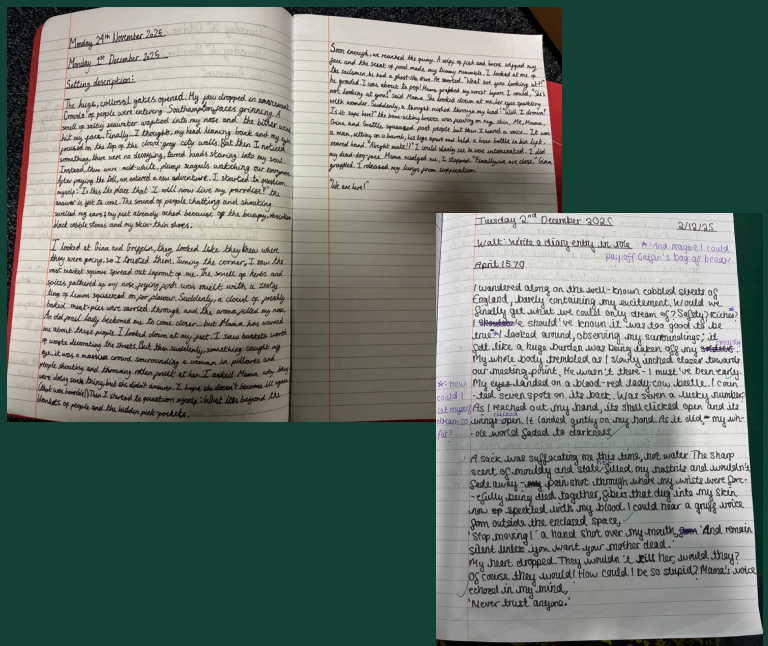 Monday 29th November 2025
Monday 1st December 2025
Setting description:
The huge, collosal gates opened. My jaw dropped in amazement.
Crowds of people were entering Southampton, faces grinning. A
smell of salty seawater wafted into my nose and the bitter wind
hit my face. Finally I thought, my head leaning back and my eyes
perched on the top of the cloud-grey city walls. But then I noticed
something, there were no decaying, tarred heads staring into my soul.
Instead, there were milk-white, plump seagulls watching our
After paying the toll, we entered a new adventure. I started to question
myself: "Is this the place that I will now live my paradise?" the
answer is yet to come. The sound of people chatting and shouting
swelled my ears; my feet already ached because of the bumpy,
black cobble stones and my skin-thin shoes.
I looked at Gina and Griffin, they looked like they knew where
they were going, so I trusted them. Turning the corner, I saw the
vast market square spread out infront of me. The smell of herbs and
spices gathered up my nose, frying fish was smelt with a zesty
ting of lemon squeezed on, for flavour. Suddenly, a cloud of freshly
baked meat-pies were carried through and the aroma filled my nose.
An old, frail lady beckoned me to come closer but Mama has warned
me about these people. I looked down at my feet. I saw buckets worth
of waste decorating the streets. But then suddenly, something caught my
eye, it was a massive crowd sourrounding a woman in pillores and
people shouting and throwing rotten fruit at her. I asked Mama why they
were doing such thing, but she didn't answer. I hope she doesn't become ill again
(that was horrible!) Then I started to question myself: What lies beyond the
blankets of people and the hidden pick-pockets.
Soon enough, we reached the quay. A wiff of fish and brine whipped my
face and the scent of food made my tummy rumble. I looked at one of
the salesmen, he had a ghost-like stare. He snorted. "What are you looking at?!"
he growled. I was about to pop! Mama grabbed my wrist before I could, "She's
not looking at you!" said Mama. She looked down at me, her eyes sparkling
with wonder. Suddenly, a thought rushed through my head: "Will I drown?
Is it safe here?" the bone-biting breeze was freezing on my skin. Me, Mama,
Gina and Griffin squeezed past people but then I heard a voice. It was
a man, sitting on a barrel, his legs apart and held a beer bottle in his left,
scarred hand. "Alright mate!?" I could clearly see he was intoxicated. I did
my dead-dog-face. Mama nudged me, I stopped. "Finally, we are close." Gina
gargled. I released my lungs from suffication.
"We are here!"
Tuesday 2nd December 2025
2/12/25
Walt: Write a diary entry in role
*: And maybe I could
pay off Gefan's bag of beads!
April 1579
I wandered along on the well-known cobbled streets of
England, barely containing my excitement. Would we
finally get what we could only dream of? Safety? Riches?*
I should've known it was too good to be
true.* I looked around, observing my surroundings; it
felt like a huge burden was being taken off my shoulders.
My whole body trembled as I slowly inched closer towards
our meeting point. He wasn't there - I must've been early.
My eyes landed on a blood-red lady-cow beetle. I coun
-ted seven spots on its back. Was seven a lucky number?
As I reached out my hand, its shell clicked open and its
wings open. It landed gently on my hand. As it did, my wh-
-ole world faded to darkness.
*: How
could I
let myself
dream so
far?
A sack was suffocating me this time, not water. The sharp
scent of mouldy and stale filled my nostrils and wouldn't
fade away - pain shot through where my wrists were forc-
-efully being tied together, fibers that dug into my skin
now speckled with my blood. I could hear a gruff voice
from outside the enclosed space,
'Stop moving!' a hand shot over my mouth, 'And remain
silent unless you want your mother dead.'
My heart dropped. They wouldn't kill her, would they?
Of course they would! How could I be so stupid? Mama's voice
echoed in my mind,
'Never trust anyone.'